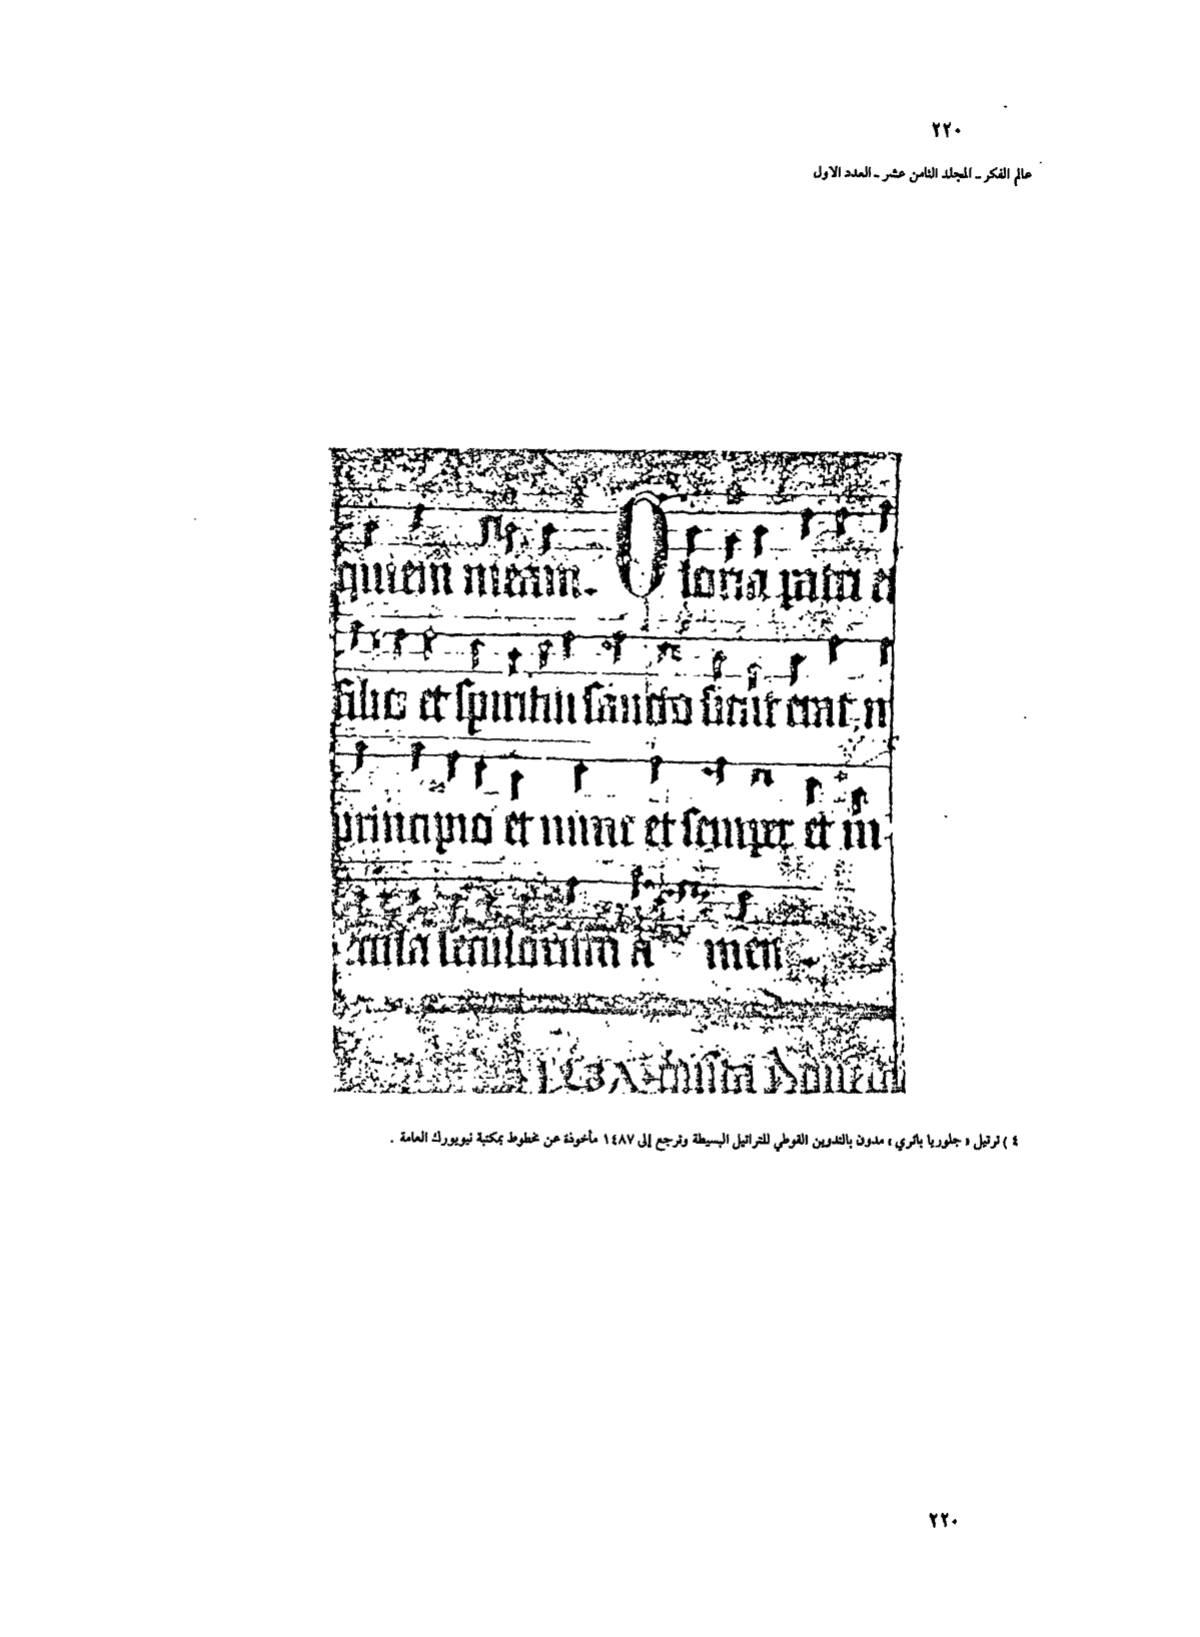 ٢٢٠
عالم الفكر - المجلد الثامن عشر - العدد الاول
quiem meam. Gloria patri et
filio et spiritui sancto sicut erat, in
principio et nunc et semper et in
secula seculorum a men
٤) ترتيل «جلوريا باتري» مدون بالتدوين القوطي للتراتيل البسيطة وترجع إلى ١٤٨٧ مأخوذة عن مخطوط بمكتبة نيويورك العامة .
٢٢٠